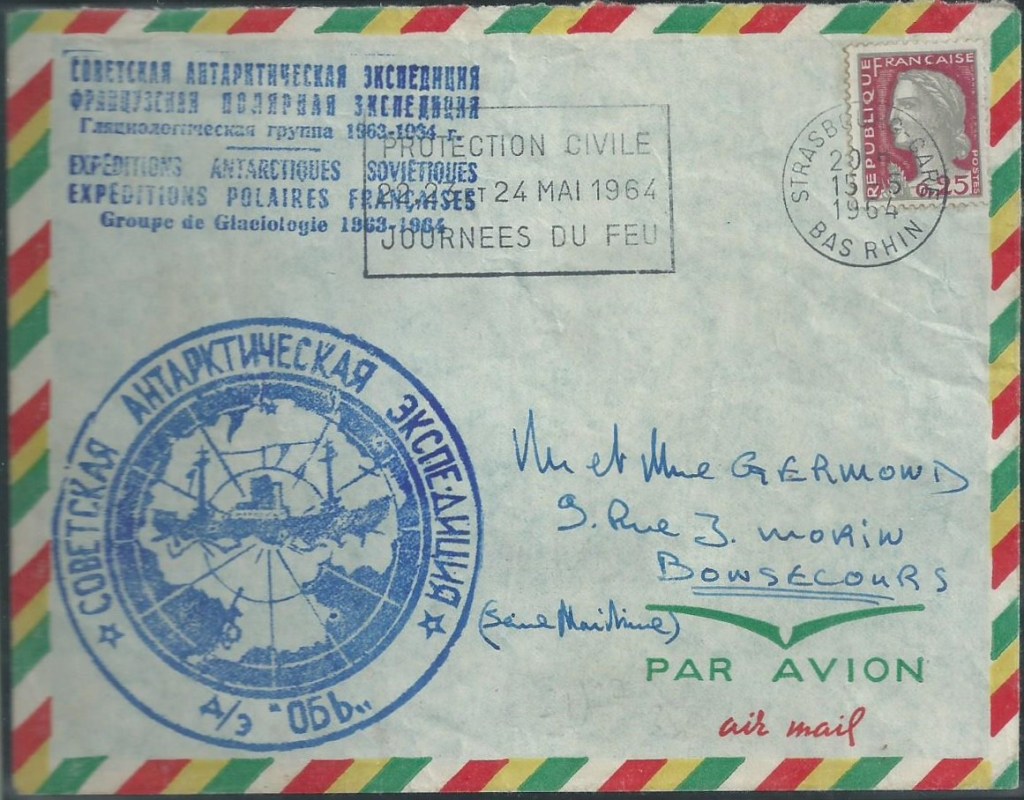 СОВЕТСКАЯ АНТАРКТИЧЕСКАЯ ЭКСПЕДИЦИЯ
ФРАНЦУЗСКАЯ ПОЛЯРНАЯ ЭКСПЕДИЦИЯ
Гляциологическая группа 1963-1964 г.
EXPÉDITIONS ANTARCTIQUES SOVIÉTIQUES
EXPÉDITIONS POLAIRES FRANÇAISES
Groupe de Glaciologie 1963-1964
PROTECTION CIVILE
22, 23 ET 24 MAI 1964
JOURNEES DU FEU
STRASBOURG GARE
20
15-5
1964
BAS RHIN
REPUBLIQUE FRANCAISE
0,25
POSTES
СОВЕТСКАЯ АНТАРКТИЧЕСКАЯ ЭКСПЕДИЦИЯ
Д/Э "ОБЬ"
Mr et Mme GERMOND
9. Rue J. MORIN
BONSECOURS
(Seine Maritime)
PAR AVION
air mail